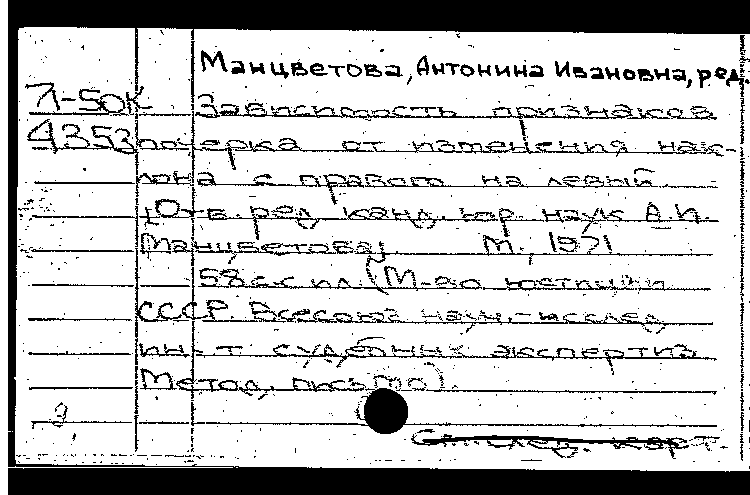 Манцветова, Антонина Ивановна, ред.
71-50К Зависимость признаков
4353 почерка от изменения нак-
лона с правого на левый.
[Отв. ред. канд. юр. наук А.И.
Манцветова]. М., 1971
58 с. с ил. (М-во юстиции
СССР. Всесоюз. науч.-исслед.
ин-т судебных экспертиз
Метод. письмо).
См. след. карт.